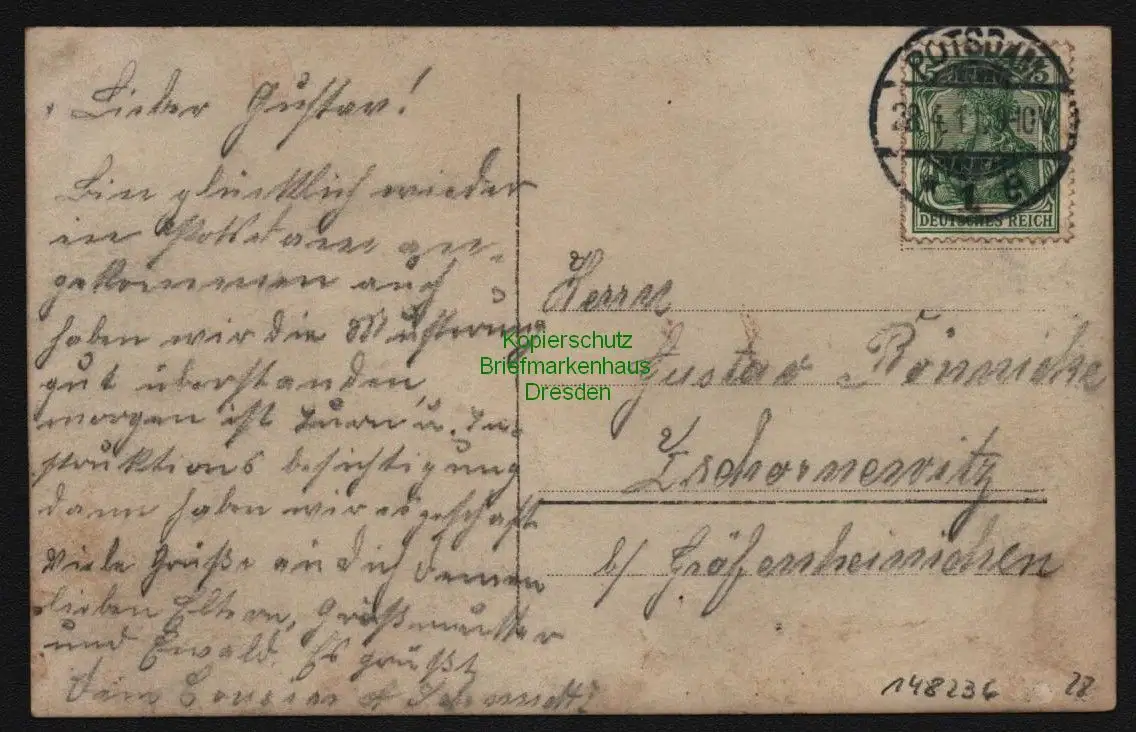 Lieber Gustav!
Bin glücklich wieder
in Potsdam an-
gekommen auch
haben wir die Musterung
gut überstanden,
morgen ist Turn u. In-
struktions besichtigung
dann haben wir es geschaft
Viele Grüße an dich deinen
lieben Eltern, Großmutter
und Ewald. Es grüßt
Dein Cousin
POTSDAM
1
DEUTSCHES REICH
Herrn
Gustav Bönnicke
Zschornewitz
b/ Gräfenheinichen
Kopierschutz
Briefmarkenhaus
Dresden
148236
28